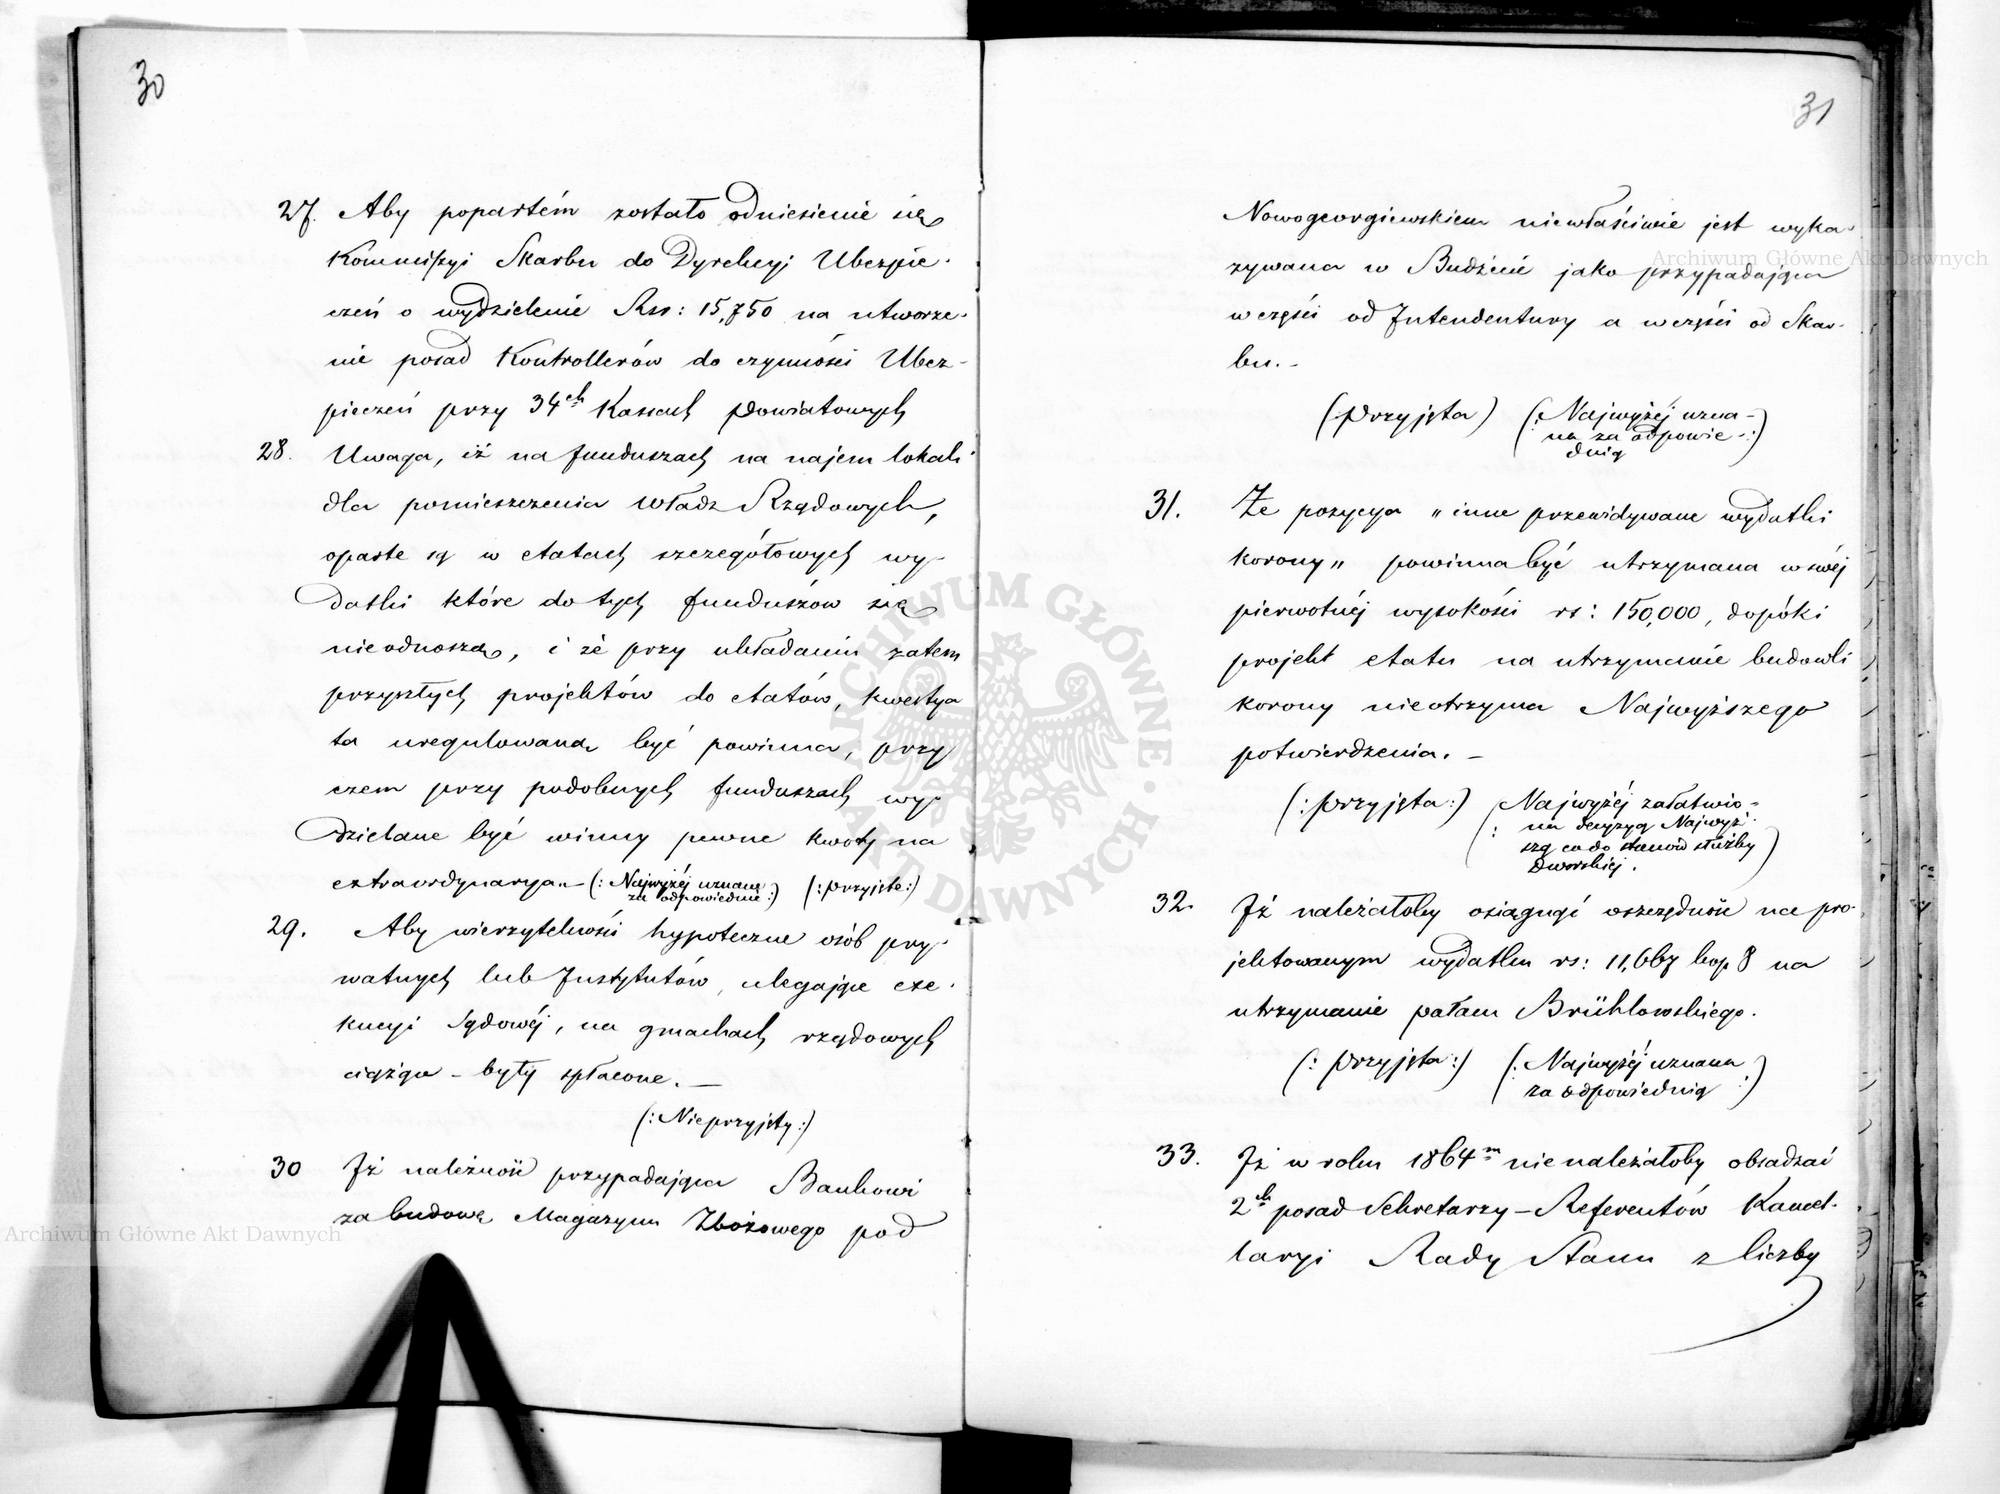 30
27. Aby popartém zostało odniesienie się
Kommissyi Skarbu do Dyrekcyj Ubezpie-
czeń o wydzielenie Rsr: 15,750 na utworze-
nie posad Kontrollerów do czynności Ubez-
pieczeń przy 34ch Kassach Powiatowych
28. Uwaga, iż na funduszach na najem lokali
dla pomieszczenia Władz Rządowych,
oparte są w etatach szczegółowych wy-
datki które do tych funduszów się
nieodnoszą, i że przy układaniu zatem
przyszłych projektów do etatów, kwestya
ta uregulowana być powinna, przy
czem przy podobnych funduszach wy-
dzielane być winny pewne kwoty na
extraordynarya.- (: Najwyżéj uznane za odpowiednie :) (: przyjęte :)
29. Aby wierzytelności hypoteczne osób pry-
watnych lub Instytutów, ulegające exe-
kucyi Sądowéj, na gmachach rządowych
ciążące - były spłacone. -
(: Nieprzyjęty :)
30 Iż należność przypadająca Bankowi
za budowę Magazynu Zbożowego pod
31
Nowogeorgiewskiem niewłaściwie jest wyka-
zywana w Budżecie jako przypadająca
w części od Intendentury a w części od Skar-
bu. -
(Przyjęta) (: Najwyżéj uzna-
na za odpowie- :)
dnią
31. Że pozycya „inne przewidywane wydatki
korony„ powinna być utrzymana w swéj
pierwotnéj wysokości rs: 150,000, dopóki
projekt etatu na utrzymanie budowli
korony nieotrzyma Najwyższego
potwierdzenia. -
(: przyjęta :) (: Najwyżéj załatwio-
na decyzyą Najwyż-
szą co do etatów służby
Dworskiéj. )
32. Iż należałoby osiągnąć oszczędność na pro-
jektowanym wydatku rs: 11,667 kop 8 na
utrzymanie pałacu Brühlowskiego.
(: przyjęta :) (: Najwyżéj uznana
za odpowiednią :)
33. Iż w roku 1864m nienależałoby obsadzać
2ch posad Sekretarzy - Referentów Kancel-
laryi Rady Stanu z liczby